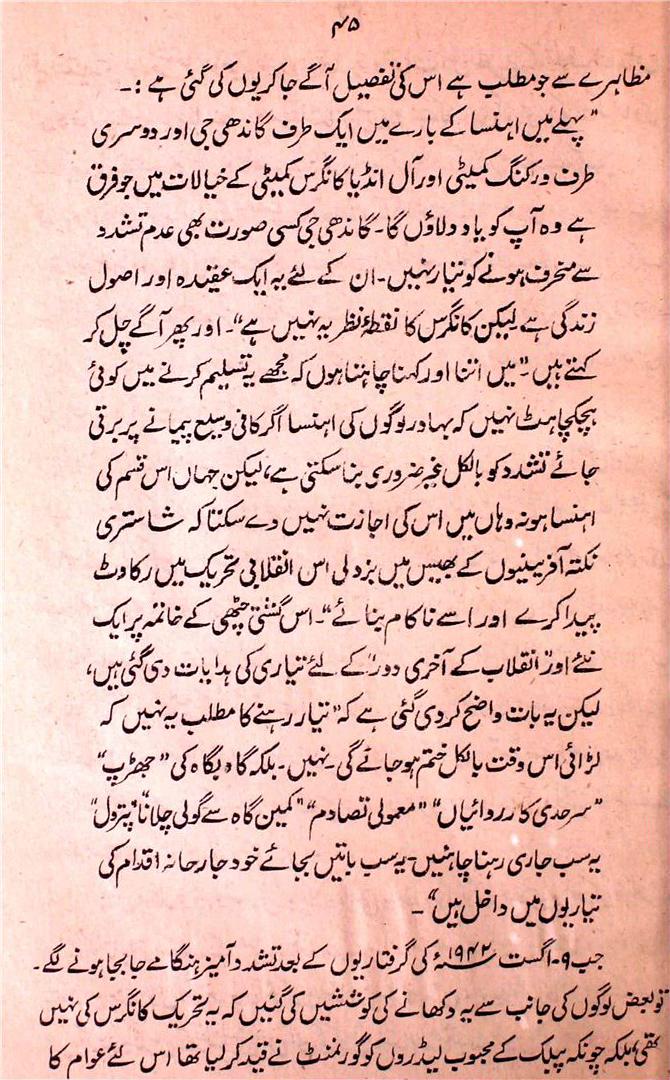 ۴۵
مظاہرے سے جو مطلب ہے اس کی تفصیل آگے جا کر یوں کی گئی ہے :۔
"پہلے میں اہنسا کے بارے میں ایک طرف گاندھی جی اور دوسری
طرف ورکنگ کمیٹی اور آل انڈیا کانگرس کمیٹی کے خیالات میں جو فرق
ہے وہ آپ کو یاد دلاؤں گا۔ گاندھی جی کسی صورت بھی عدم تشدد
سے منحرف ہونے کو تیار نہیں۔ ان کے لئے یہ ایک عقیدہ اور اصول
زندگی ہے لیکن کانگرس کا نقطۂ نظر یہ نہیں ہے"۔ اور پھر آگے چل کر
کہتے ہیں۔ "میں اتنا اور کہنا چاہتا ہوں کہ مجھے یہ تسلیم کرنے میں کوئی
ہچکچاہٹ نہیں کہ بہادر لوگوں کی اہنسا اگر کافی وسیع پیمانے پر برتی
جائے تشدد کو بالکل غیر ضروری بنا سکتی ہے، لیکن جہاں اس قسم کی
اہنسا ہو نہ وہاں میں اس کی اجازت نہیں دے سکتا کہ شاستری
نکتہ آفرینیوں کے بھیس میں بزدلی اس انقلابی تحریک میں رکاوٹ
پیدا کرے اور اسے ناکام بنائے"۔ اس گشتی چٹھی کے خاتمہ پر ایک
نئے اور "انقلاب کے آخری دور" کے لئے تیاری کی ہدایات دی گئی ہیں،
لیکن یہ بات واضح کر دی گئی ہے کہ "تیار رہنے کا مطلب یہ نہیں کہ
لڑائی اس وقت بالکل ختم ہو جائے گی۔ نہیں۔ بلکہ گاہ بگاہ کی "جھڑپ"
"سرحدی کارروائیاں" "معمولی تصادم" "کمین گاہ سے گولی چلانا" "پٹرول"
یہ سب جاری رہنا چاہئیں۔ یہ سب باتیں بجائے خود جارحانہ اقدام کی
تیاریوں میں داخل ہیں"۔
جب ۹۔ اگست ۱۹۴۲ء کی گرفتاریوں کے بعد تشدد آمیز ہنگامے جابجا ہونے لگے۔
تو بعض لوگوں کی جانب سے یہ دکھانے کی کوششیں کی گئیں کہ یہ تحریک کانگرس کی نہیں
تھی، بلکہ چونکہ پبلک کے محبوب لیڈروں کو گورنمنٹ نے قید کر لیا تھا اس لئے عوام کا